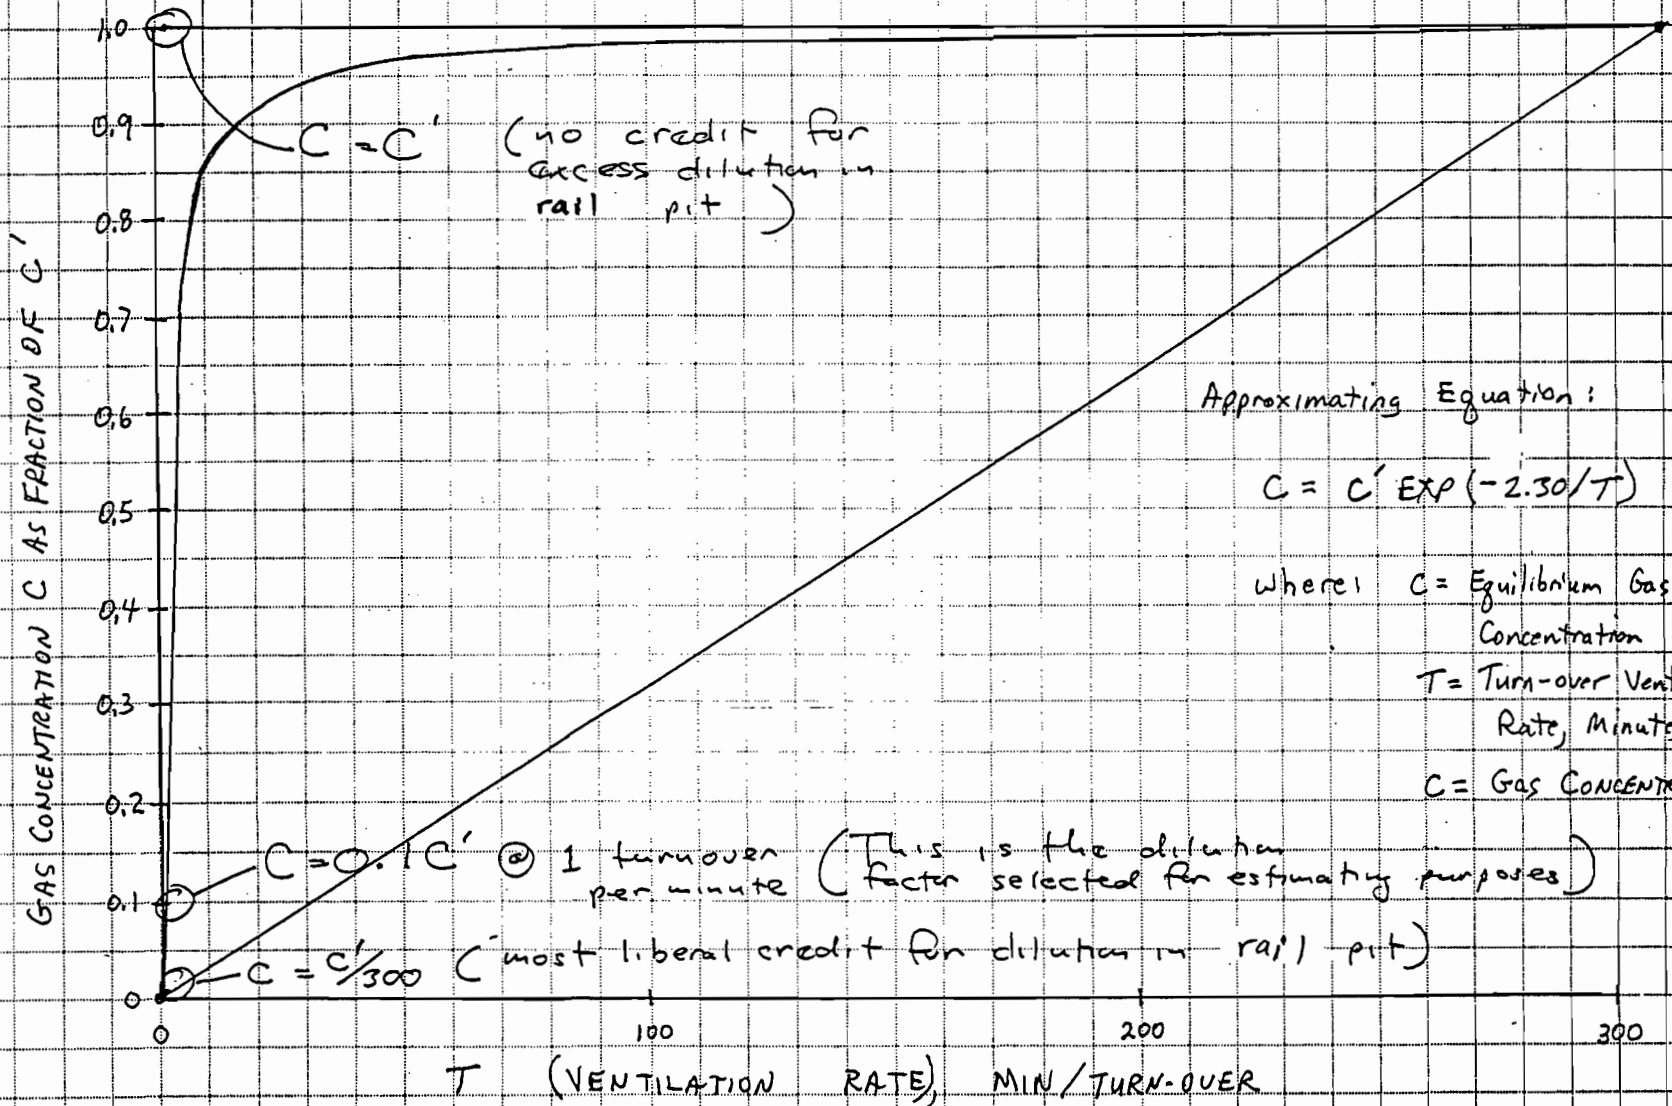 GAS CONCENTRATION C AS FRACTION OF C'
1.0
0.9
0.8
0.7
0.6
0.5
0.4
0.3
0.2
0.1
0
C = C' (no credit for
excess dilution in
rail pit)
Approximating Equation:
C = C' EXP (-2.30/T)
where: C = Equilibrium Gas
Concentration
T = Turn-over Vent
Rate, Minute
C = Gas CONCENTR
C = 0.1C' @ 1 turnover
per minute
(This is the dilution
factor selected for estimating purposes)
C = C'/300 (most liberal credit for dilution in rail pit)
0 100 200 300
T (VENTILATION RATE), MIN/TURN-OVER